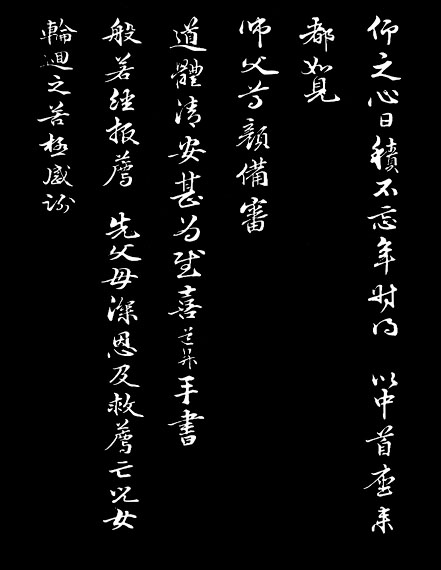 仰之心日積不忘年時得 以中首座来
都如見
師父尊顏備審
道體清安甚為慰喜道昇手書
般若經报薦 先父母深恩及救薦亡兒女
輪迴之苦極感謝